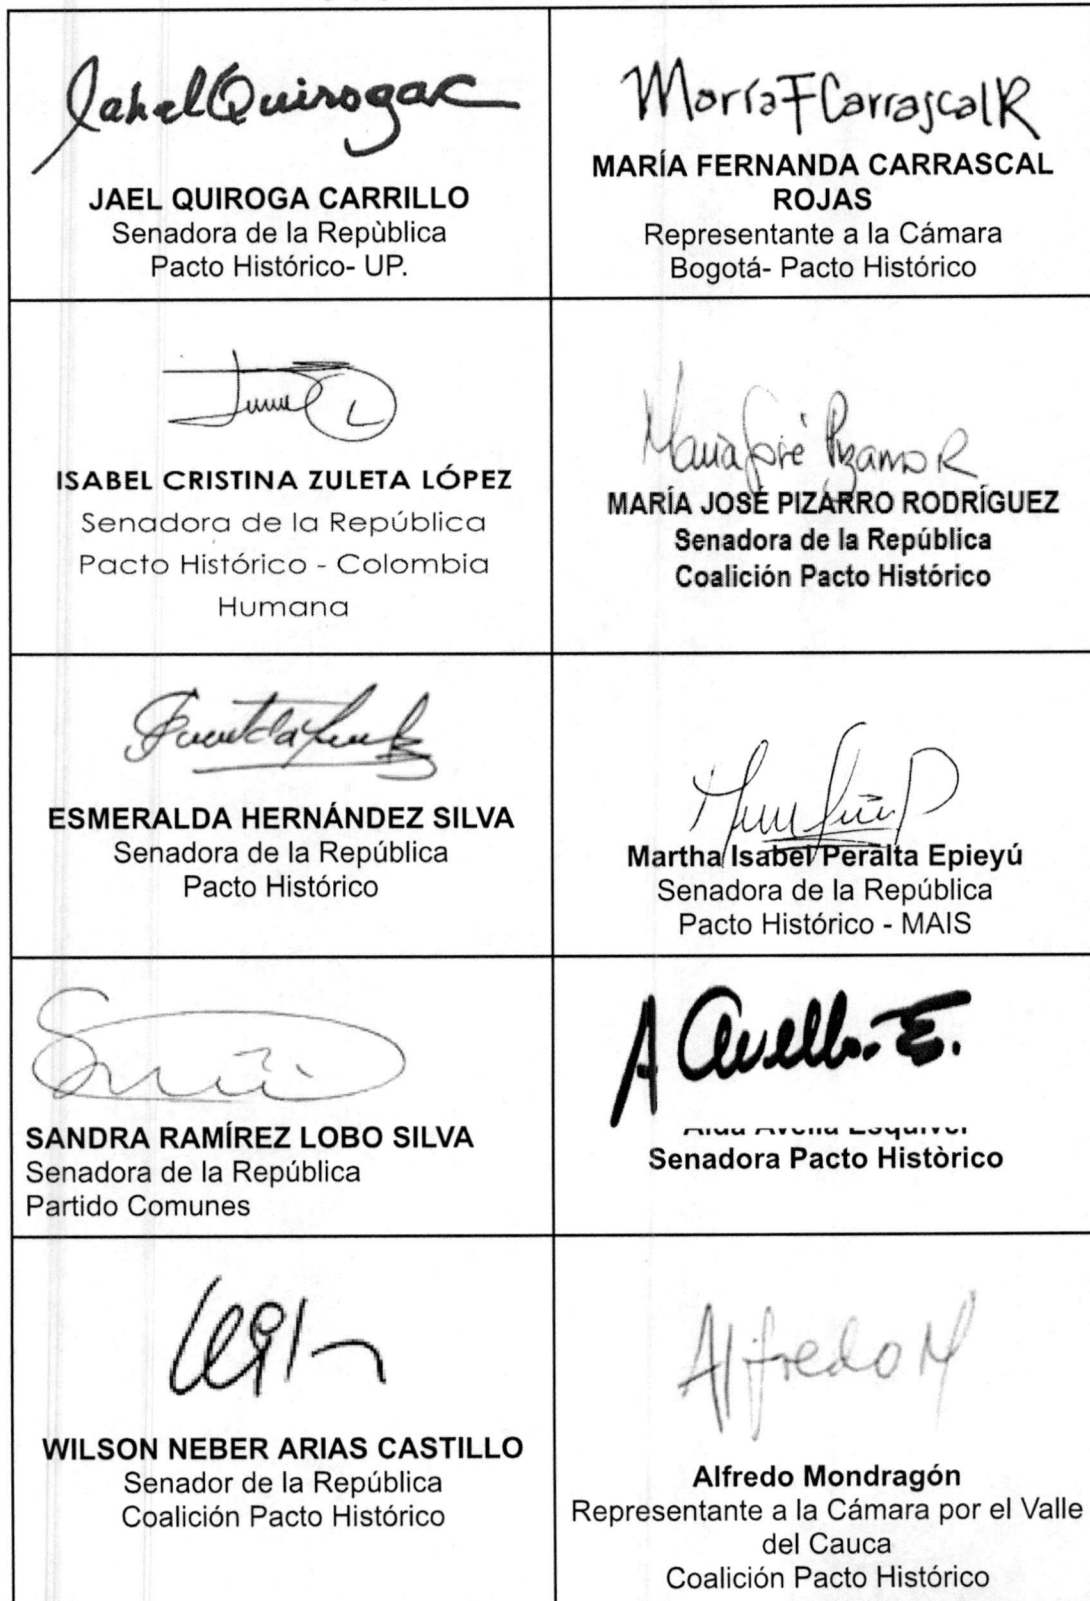 Jahel Quiroga C
JAEL QUIROGA CARRILLO
Senadora de la Repùblica
Pacto Histórico- UP.
María F Carrascal R
MARÍA FERNANDA CARRASCAL
ROJAS
Representante a la Cámara
Bogotá- Pacto Histórico
ISABEL CRISTINA ZULETA LÓPEZ
Senadora de la República
Pacto Histórico - Colombia
Humana
María José Pizarro R
MARÍA JOSÉ PIZARRO RODRÍGUEZ
Senadora de la República
Coalición Pacto Histórico
ESMERALDA HERNÁNDEZ SILVA
Senadora de la República
Pacto Histórico
Martha Isabel Peralta Epieyú
Senadora de la República
Pacto Histórico - MAIS
SANDRA RAMÍREZ LOBO SILVA
Senadora de la República
Partido Comunes
A Avella E.
Aida Avella Esquivel
Senadora Pacto Històrico
WILSON NEBER ARIAS CASTILLO
Senador de la República
Coalición Pacto Histórico
Alfredo M
Alfredo Mondragón
Representante a la Cámara por el Valle
del Cauca
Coalición Pacto Histórico